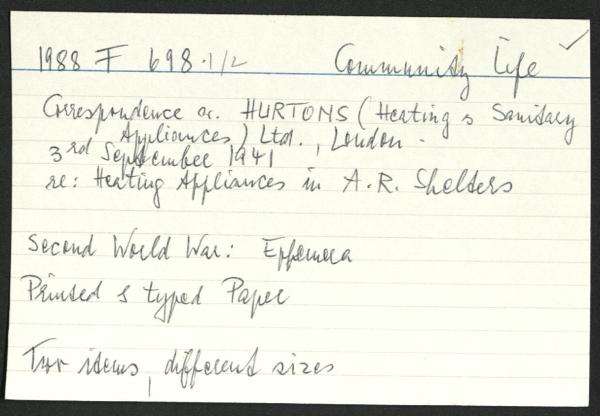 1988 F 698.1/2 Community Life ✓
Correspondence a. HURTONS (Heating & Sanitary
Appliances) Ltd., London.
3rd September 1941
re: Heating Appliances in A.R. Shelters
Second World War: Ephemera
Printed & typed Paper
Two items, different sizes